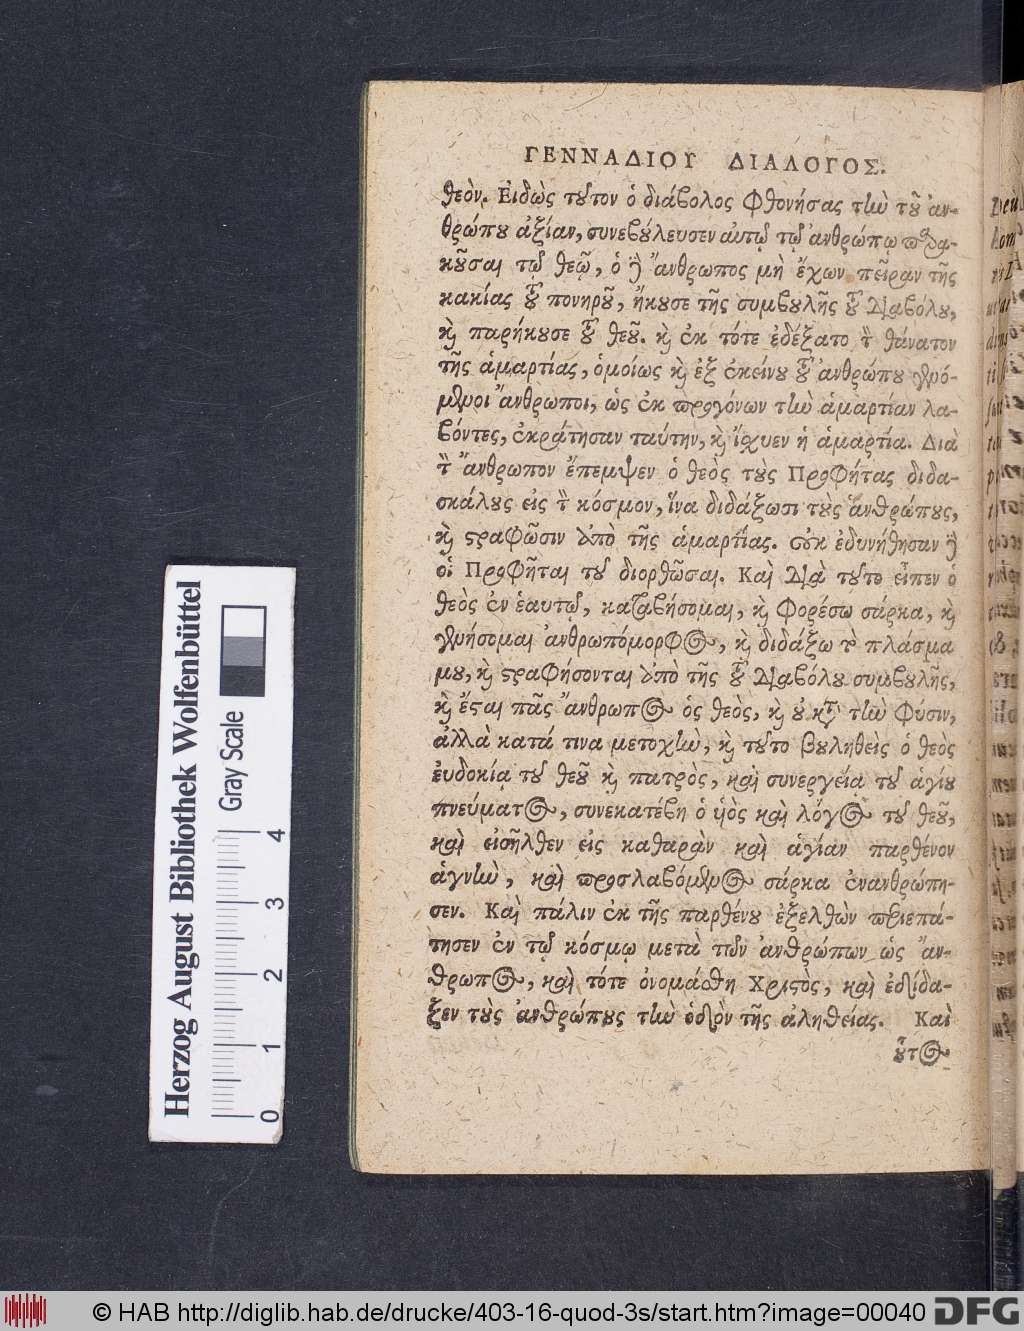 ΓΕΝΝΑΔΙΟΥ ΔΙΑΛΟΓΟΣ.
θεὸν. Εἰδὼς τοῦτον ὁ διάβολος φθονήσας τὴν τοῦ ἀν-
θρώπου ἀξίαν, συνεβούλευσεν αὐτῷ τῷ ἀνθρώπῳ παρα-
κοῦσαι τῷ θεῷ, ὁ δὲ ἄνθρωπος μὴ ἔχων πεῖραν τῆς
κακίας τοῦ πονηροῦ, ἤκουσε τῆς συμβουλῆς τοῦ διαβόλου,
καὶ παρήκουσε τοῦ θεοῦ. καὶ ἐκ τότε ἐδέξατο τὸν θάνατον
τῆς ἁμαρτίας, ὁμοίως καὶ ἐξ ἐκείνου τοῦ ἀνθρώπου γενό-
μενοι ἄνθρωποι, ὡς ἐκ προγόνων τὴν ἁμαρτίαν λα-
βόντες, ἐκράτησαν ταύτην, καὶ ἴσχυεν ἡ ἁμαρτία. Διὰ
τὸν ἄνθρωπον ἔπεμψεν ὁ θεὸς τοὺς Προφήτας διδα-
σκάλους εἰς τὸν κόσμον, ἵνα διδάξωσι τοὺς ἀνθρώπους,
καὶ στραφῶσιν ἀπὸ τῆς ἁμαρτίας. οὐκ ἐδυνήθησαν δὲ
οἱ Προφῆται τοῦ διορθῶσαι. Καὶ διὰ τοῦτο εἶπεν ὁ
θεὸς ἐν ἑαυτῷ, καταβήσομαι, καὶ φορέσω σάρκα, καὶ
γενήσομαι ἀνθρωπόμορφος, καὶ διδάξω τὸ πλάσμα
μου, καὶ στραφήσονται ἀπὸ τῆς τοῦ διαβόλου συμβουλῆς,
καὶ ἔσται πᾶς ἄνθρωπος ὁς θεὸς, καὶ οὐ κατὰ τὴν φύσιν,
ἀλλὰ κατά τινα μετοχὴν, καὶ τοῦτο βουληθεὶς ὁ θεὸς
εὐδοκίᾳ τοῦ θεοῦ καὶ πατρὸς, καὶ συνεργείᾳ τοῦ ἁγίου
πνεύματος, συνεκατέβη ὁ υἱὸς καὶ λόγος τοῦ θεοῦ,
καὶ εἰσῆλθεν εἰς καθαρὰν καὶ ἁγίαν παρθένον
ἁγνὴν, καὶ προσλαβόμενος σάρκα ἐνανθρώπη-
σεν. Καὶ πάλιν ἐκ τῆς παρθένου ἐξελθὼν περιεπά-
τησεν ἐν τῷ κόσμῳ μετὰ τῶν ἀνθρώπων ὡς ἄν-
θρωπος, καὶ τότε ὀνομάσθη Χριστὸς, καὶ ἐδίδα-
ξεν τοὺς ἀνθρώπους τὴν ὁδὸν τῆς ἀληθείας. Καὶ
οὗτος
Herzog August Bibliothek Wolfenbüttel
Gray Scale
0 1 2 3 4
© HAB http://diglib.hab.de/drucke/403-16-quod-3s/start.htm?image=00040 DFG